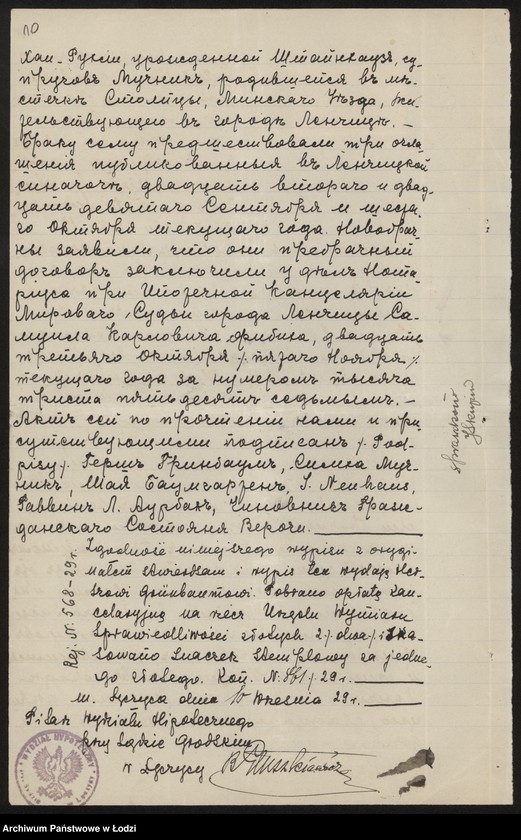 10
Хаи-Рухли, урожденной Штайнхауз, су-
пруговъ Мучникъ, родившейся въ мѣ-
стечкѣ Столпцы, Минскаго уѣзда, жи-
тельствующего въ городѣ Ленчицѣ. —
Браку сему предшествовали три огла-
шенія публикованныя въ Ленчицкой
синагогѣ, двадцать второго и двад-
цать девятаго Сентября и шеста-
го Октября текущаго года. Новобрач-
ны заявили, что они предбрачный
договоръ заключили у дѣлъ Нота-
ріуса при Ипотечной Канцеляріи
Мироваго Судьи города Ленчицы Са-
муила Карловича двадцать
третьяго Октября /. пятаго Ноября /.
текущаго года за нумеромъ тысяча
триста пятьдесятъ седьмымъ. —
Актъ сей по прочтеніи нами и при-
сутствующими подписанъ /. Pod-
pisy /. Гершъ Гринбаумъ, Симха Муч-
никъ, Шая Баумгартенъ, S. Neuhaus,
Раввинъ Л. Аурбахъ, Чиновникъ Граж-
данскаго Состоянія
Zgodność niniejszego wypisu z orygi-
nałem stwierdzam i wypis ten wydaję Her-
szowi Grinbaumowi. Pobrano opłatę kan-
celaryjną na rzecz Urzędu Wymiaru
Sprawiedliwości złotych 2 /. dwa /. i ska-
sowano znaczek stemplowy za jedne-
go złotego. Kon. N: 861 /. 29 r.
m. Łęczyca dnia 10 Września 29 r.
Rej. N: 568-29 r.
Pisarz Wydziału Hipotecznego
przy Sądzie Grodzkim
w Łęczycy
WYDZIAŁ HIPOTECZNY
Archiwum Państwowe w Łodzi